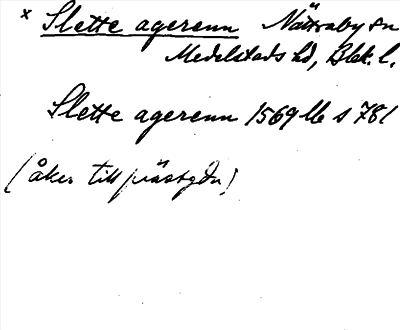 x Slette agerenn Nättraby sn
Medelstads hd, Blek. l.
Slette agerenn 1569 Llb s 781
(åker till prästgdn)